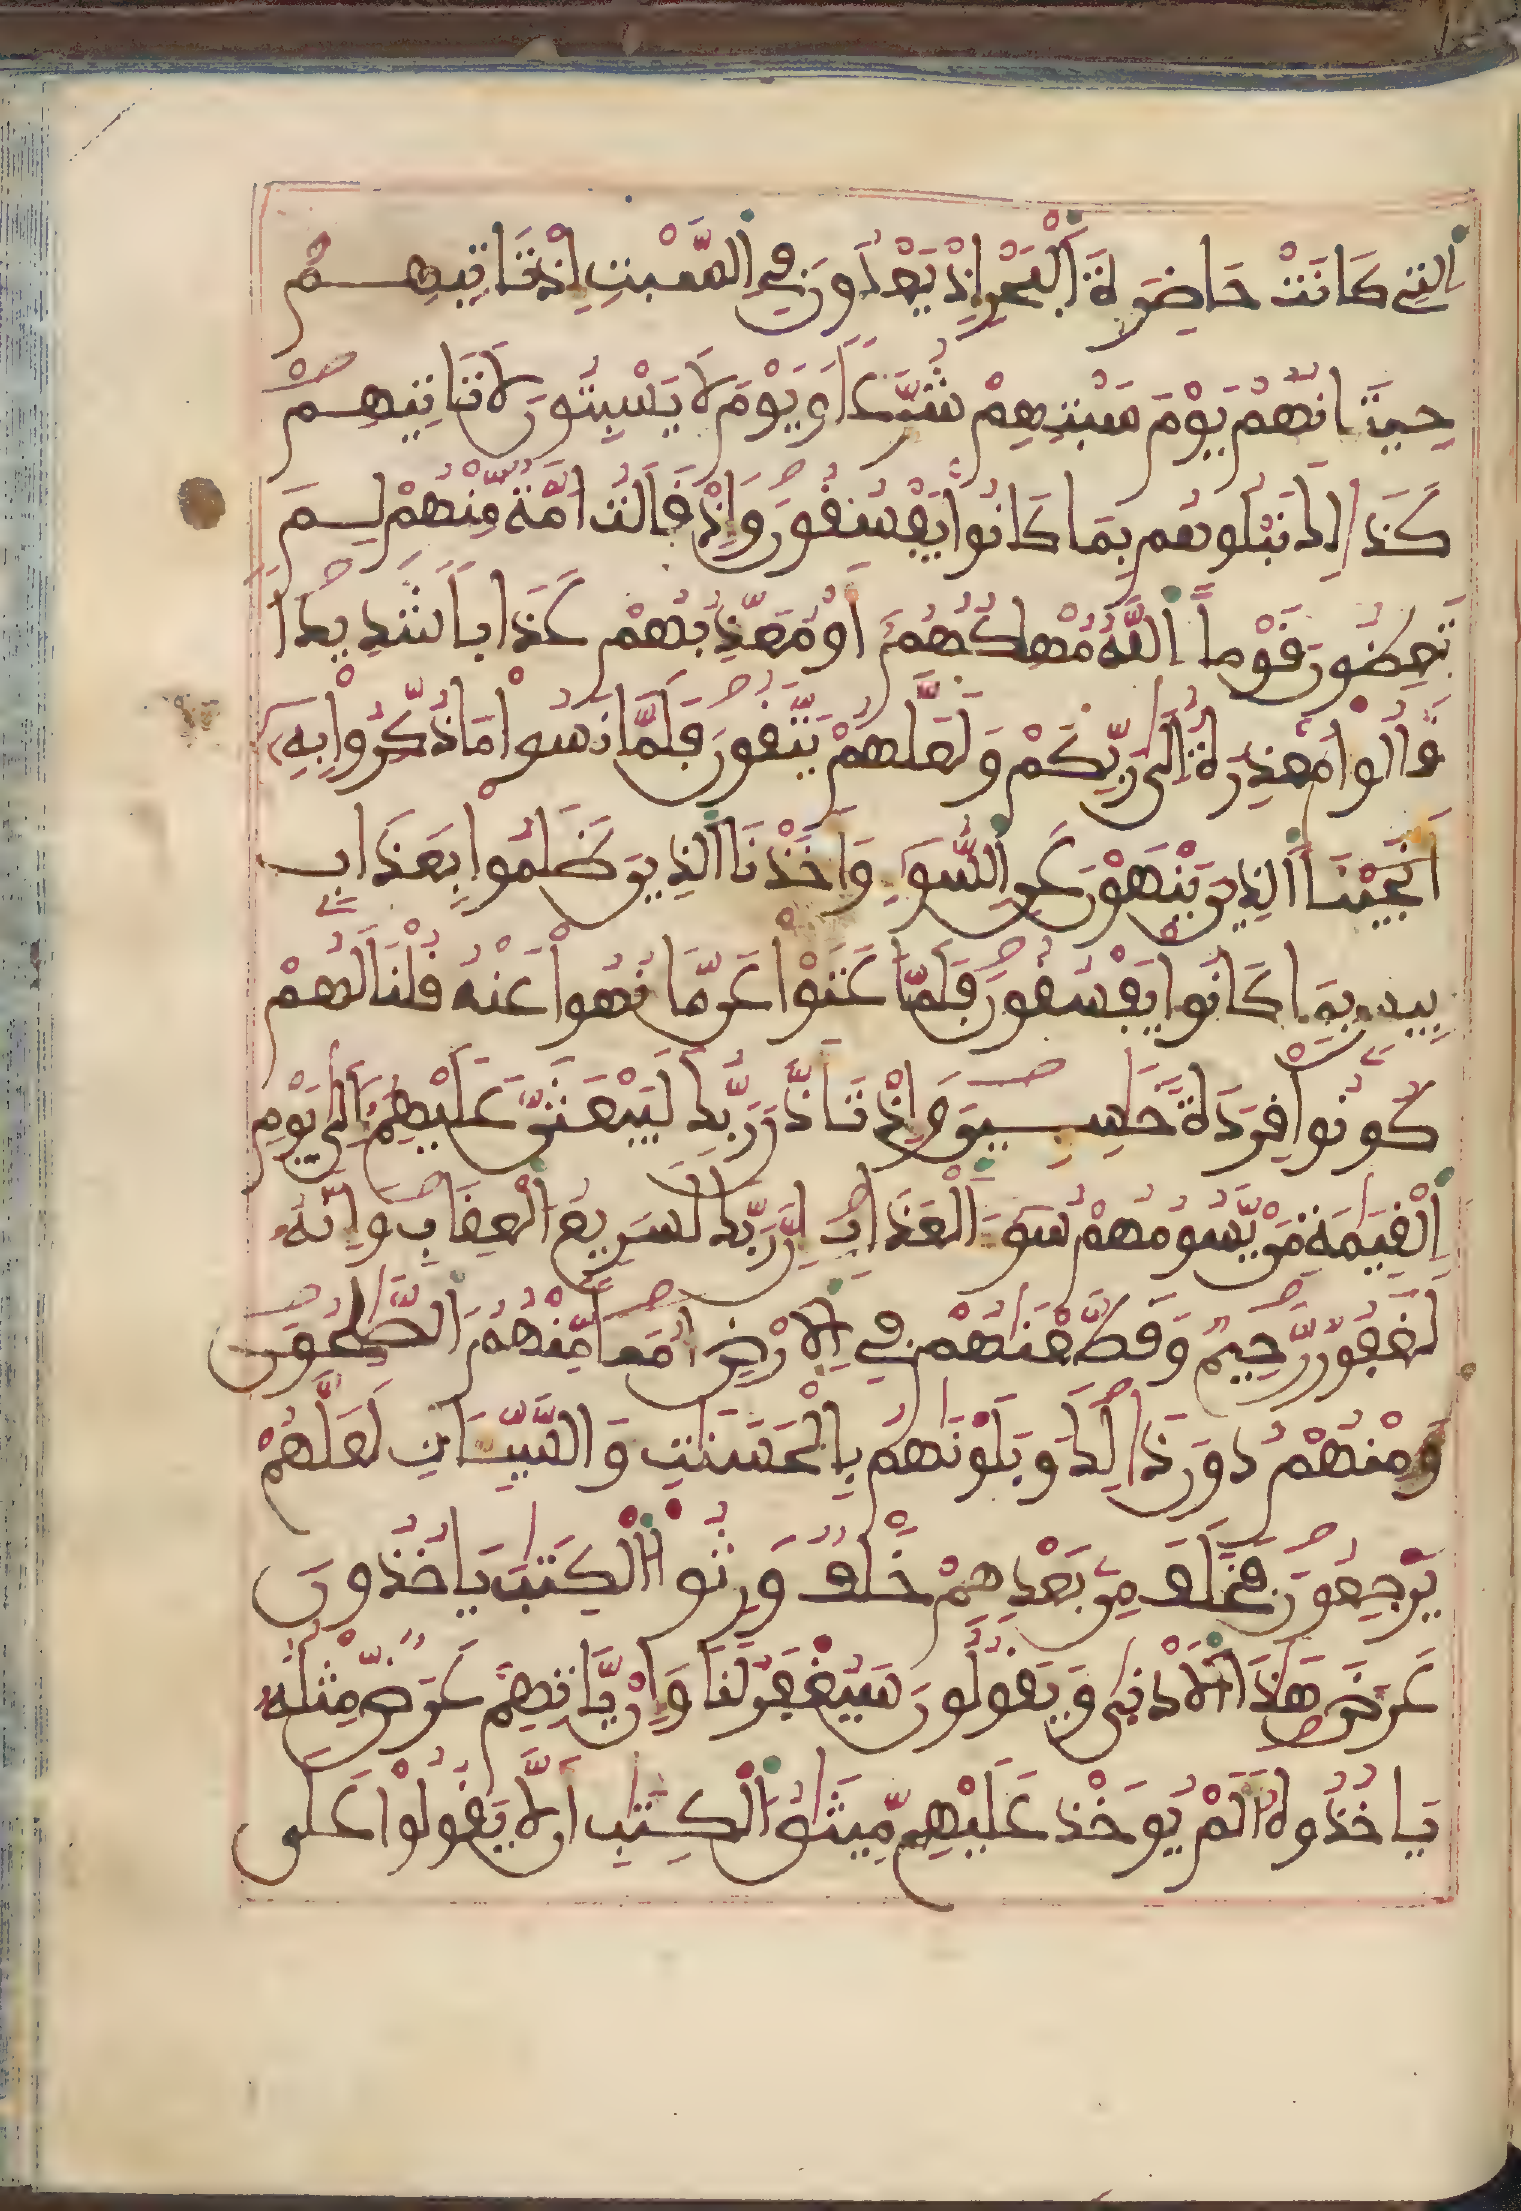 اَ۬لتِے كَانَتْ حَاضِرَةَ اَ۬لْبَحْرِ إِذْ يَعْدُونَ فِے اِ۬لسَّبْتِ إِذْ تَاتِيهِمْ
حِيتَانُهُمْ يَوْمَ سَبْتِهِمْ شُرَّعاً وَيَوْمَ لَا يَسْبِتُونَ لَا تَاتِيهِمْ
كَذَٰلِكَ نَبْلُوهُم بِمَا كَانُواْ يَفْسُقُونَ وَإِذْ قَالَتُ امَّةٌ مِّنْهُمْ لِمَ
تَعِظُونَ قَوْماً اِ۬للَّهُ مُهْلِكُهُمُ أَوْ مُعَذِّبُهُمْ عَذَاباً شَدِيداً
قَالُواْ مَعْذِرَةٌ اِلَىٰ رَبِّكُمْ وَلَعَلَّهُمْ يَتَّقُونَ فَلَمَّا نَسُواْ مَا ذُكِّرُواْ بِهِ
أَنجَيْنَا اَ۬لذِينَ يَنْهَوْنَ عَنِ اِ۬لسُّوٓءِ وَأَخَذْنَا اَ۬لذِينَ ظَلَمُواْ بِعَذَابٍ
بِيسٍ بِمَا كَانُواْ يَفْسُقُونَ فَلَمَّا عَتَوْاْ عَن مَّا نُهُواْ عَنْهُ قُلْنَا لَهُمْ
كُونُواْ قِرَدَةً خَٰسِـِٕينَ وَإِذْ تَأَذَّنَ رَبُّكَ لَيَبْعَثَنَّ عَلَيْهِمُ إِلَىٰ يَوْمِ
اِ۬لْقِيَٰمَةِ مَنْ يَّسُومُهُمْ سُوٓءَ اَ۬لْعَذَابِ إِنَّ رَبَّكَ لَسَرِيعُ اُ۬لْعِقَابِ وَإِنَّهُ
لَغَفُورٌ رَّحِيمٌ وَقَطَّعْنَٰهُمْ فِے اِ۬لَارْضِ أُمَماً مِّنْهُمُ اُ۬لصَّٰلِحُونَ
وَمِنْهُمْ دُونَ ذَٰلِكَ وَبَلَوْنَٰهُم بِالْحَسَنَٰتِ وَالسَّيِّـَٔاتِ لَعَلَّهُمْ
يَرْجِعُونَ فَخَلَفَ مِنۢ بَعْدِهِمْ خَلْفٌ وَرِثُواْ اُ۬لْكِتَٰبَ يَاخُذُونَ
عَرَضَ هَٰذَا اَ۬لَادْنَىٰ وَيَقُولُونَ سَيُغْفَرُ لَنَا وَإِنْ يَّاتِهِمْ عَرَضٌ مِّثْلُهُ
يَاخُذُوهُ أَلَمْ يُوخَذْ عَلَيْهِم مِّيثَٰقُ اُ۬لْكِتَٰبِ أَن لَّا يَقُولُواْ عَلَى